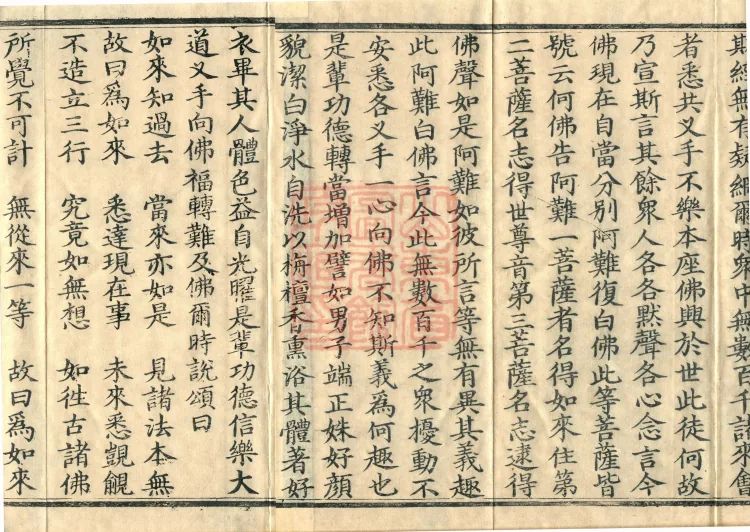 斯經無有疑網爾時衆中無數百千諸來會
者悉共叉手不樂本座佛興於世此徒何故
乃宣斯言其餘衆人各各默聲各心念言今
佛現在自當分別阿難復白佛此等菩薩皆
號云何佛告阿難一菩薩者名得如來住第
二菩薩名志得世尊音第三菩薩名志逮得
佛聲如是阿難如彼所言等無有異其義趣
此阿難白佛言今此無數百千之衆擾動不
安悉各叉手一心向佛不知斯義爲何趣也
是輩功德轉當增加譬如男子端正姝好顏
貌潔白淨水自洗以栴檀香熏浴其體著好
衣畢其人體色益自光曜是輩功德信樂大
道叉手向佛福轉難及佛爾時說頌曰
如來知過去　當來亦如是　見諸法本無
故曰爲如來　悉達現在事　未來悉覩覩
不造立三行　究竟如無想　如往古諸佛
所覺不可計　無從來一等　故曰爲如來